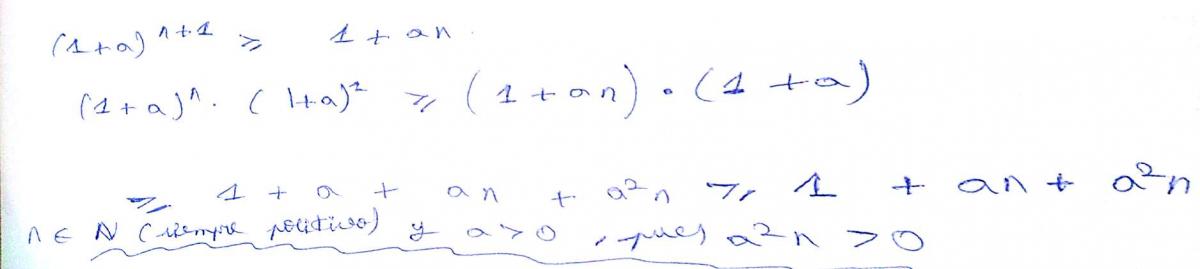 (1+a)^{n+1} ≥ 1 + an
(1+a)^n · (1+a)^1 ≥ (1 + an) · (1 + a)
≥ 1 + a + an + a²n ≥ 1 + an + a²n
n ∈ N (siempre positivo) y a > 0, pues a²n > 0